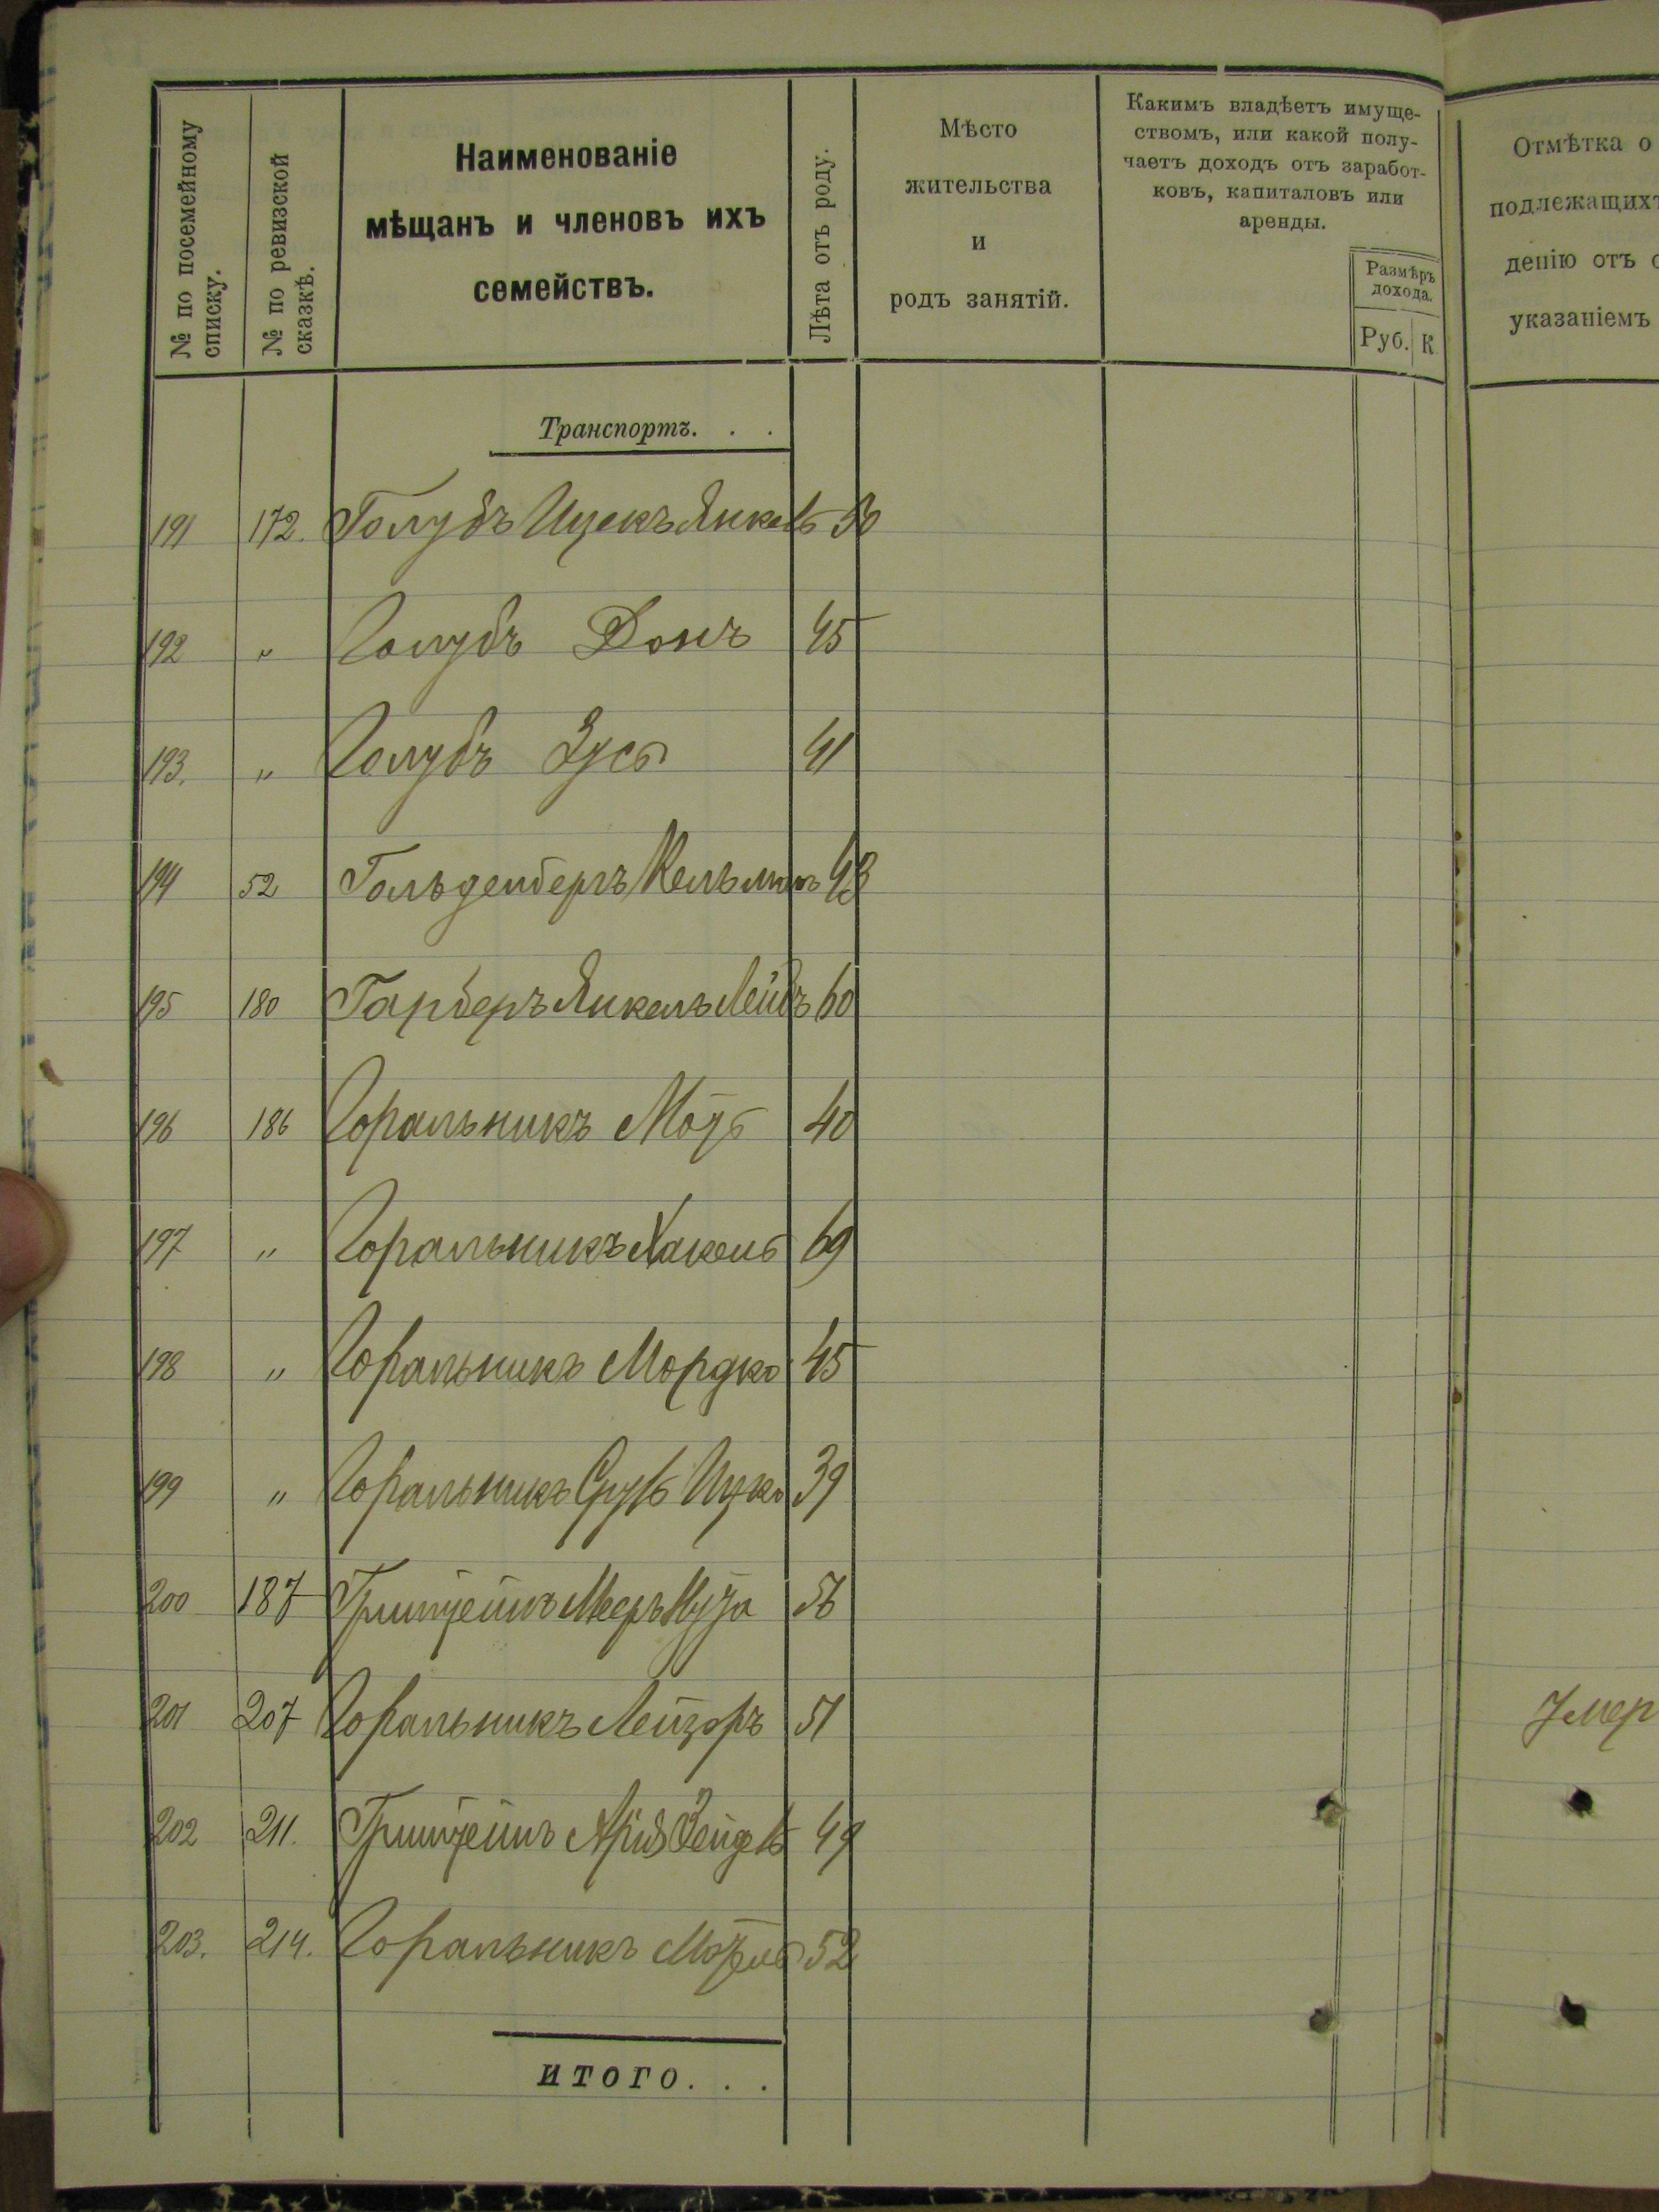 № по посемейному списку.
№ по ревизской сказкѣ.
Наименованіе
мѣщанъ и членовъ ихъ
семействъ.
Лѣта отъ роду.
Мѣсто
жительства
и
родъ занятій.
Какимъ владѣетъ имуще-
ствомъ, или какой полу-
чаетъ доходъ отъ заработ-
ковъ, капиталовъ или
аренды.
Размѣръ
дохода.
Руб. К.
Отмѣтка о
подлежащихъ
денію отъ
указаніемъ
Транспортъ. . .
191 172. Голубъ Ицекъ Янкель
192 " Голубъ 45
193. " Голубъ Зусь 41
194 52 Гольденбергъ Кельманъ 43
195 180 Гарберъ Янкель Лейбъ 60
196 186 Горальникъ 40
197 " Горальникъ 69
198 " Горальникъ Мордко 45
199 " Горальникъ Сруль Ицко 39
200 187 Гринштейнъ Мееръ 56
201 207 Горальникъ Лейзоръ 51 Умер
202 211. Гринштейнъ Арія Зейдель 49
203. 214. Горальникъ 52
ИТОГО. . .